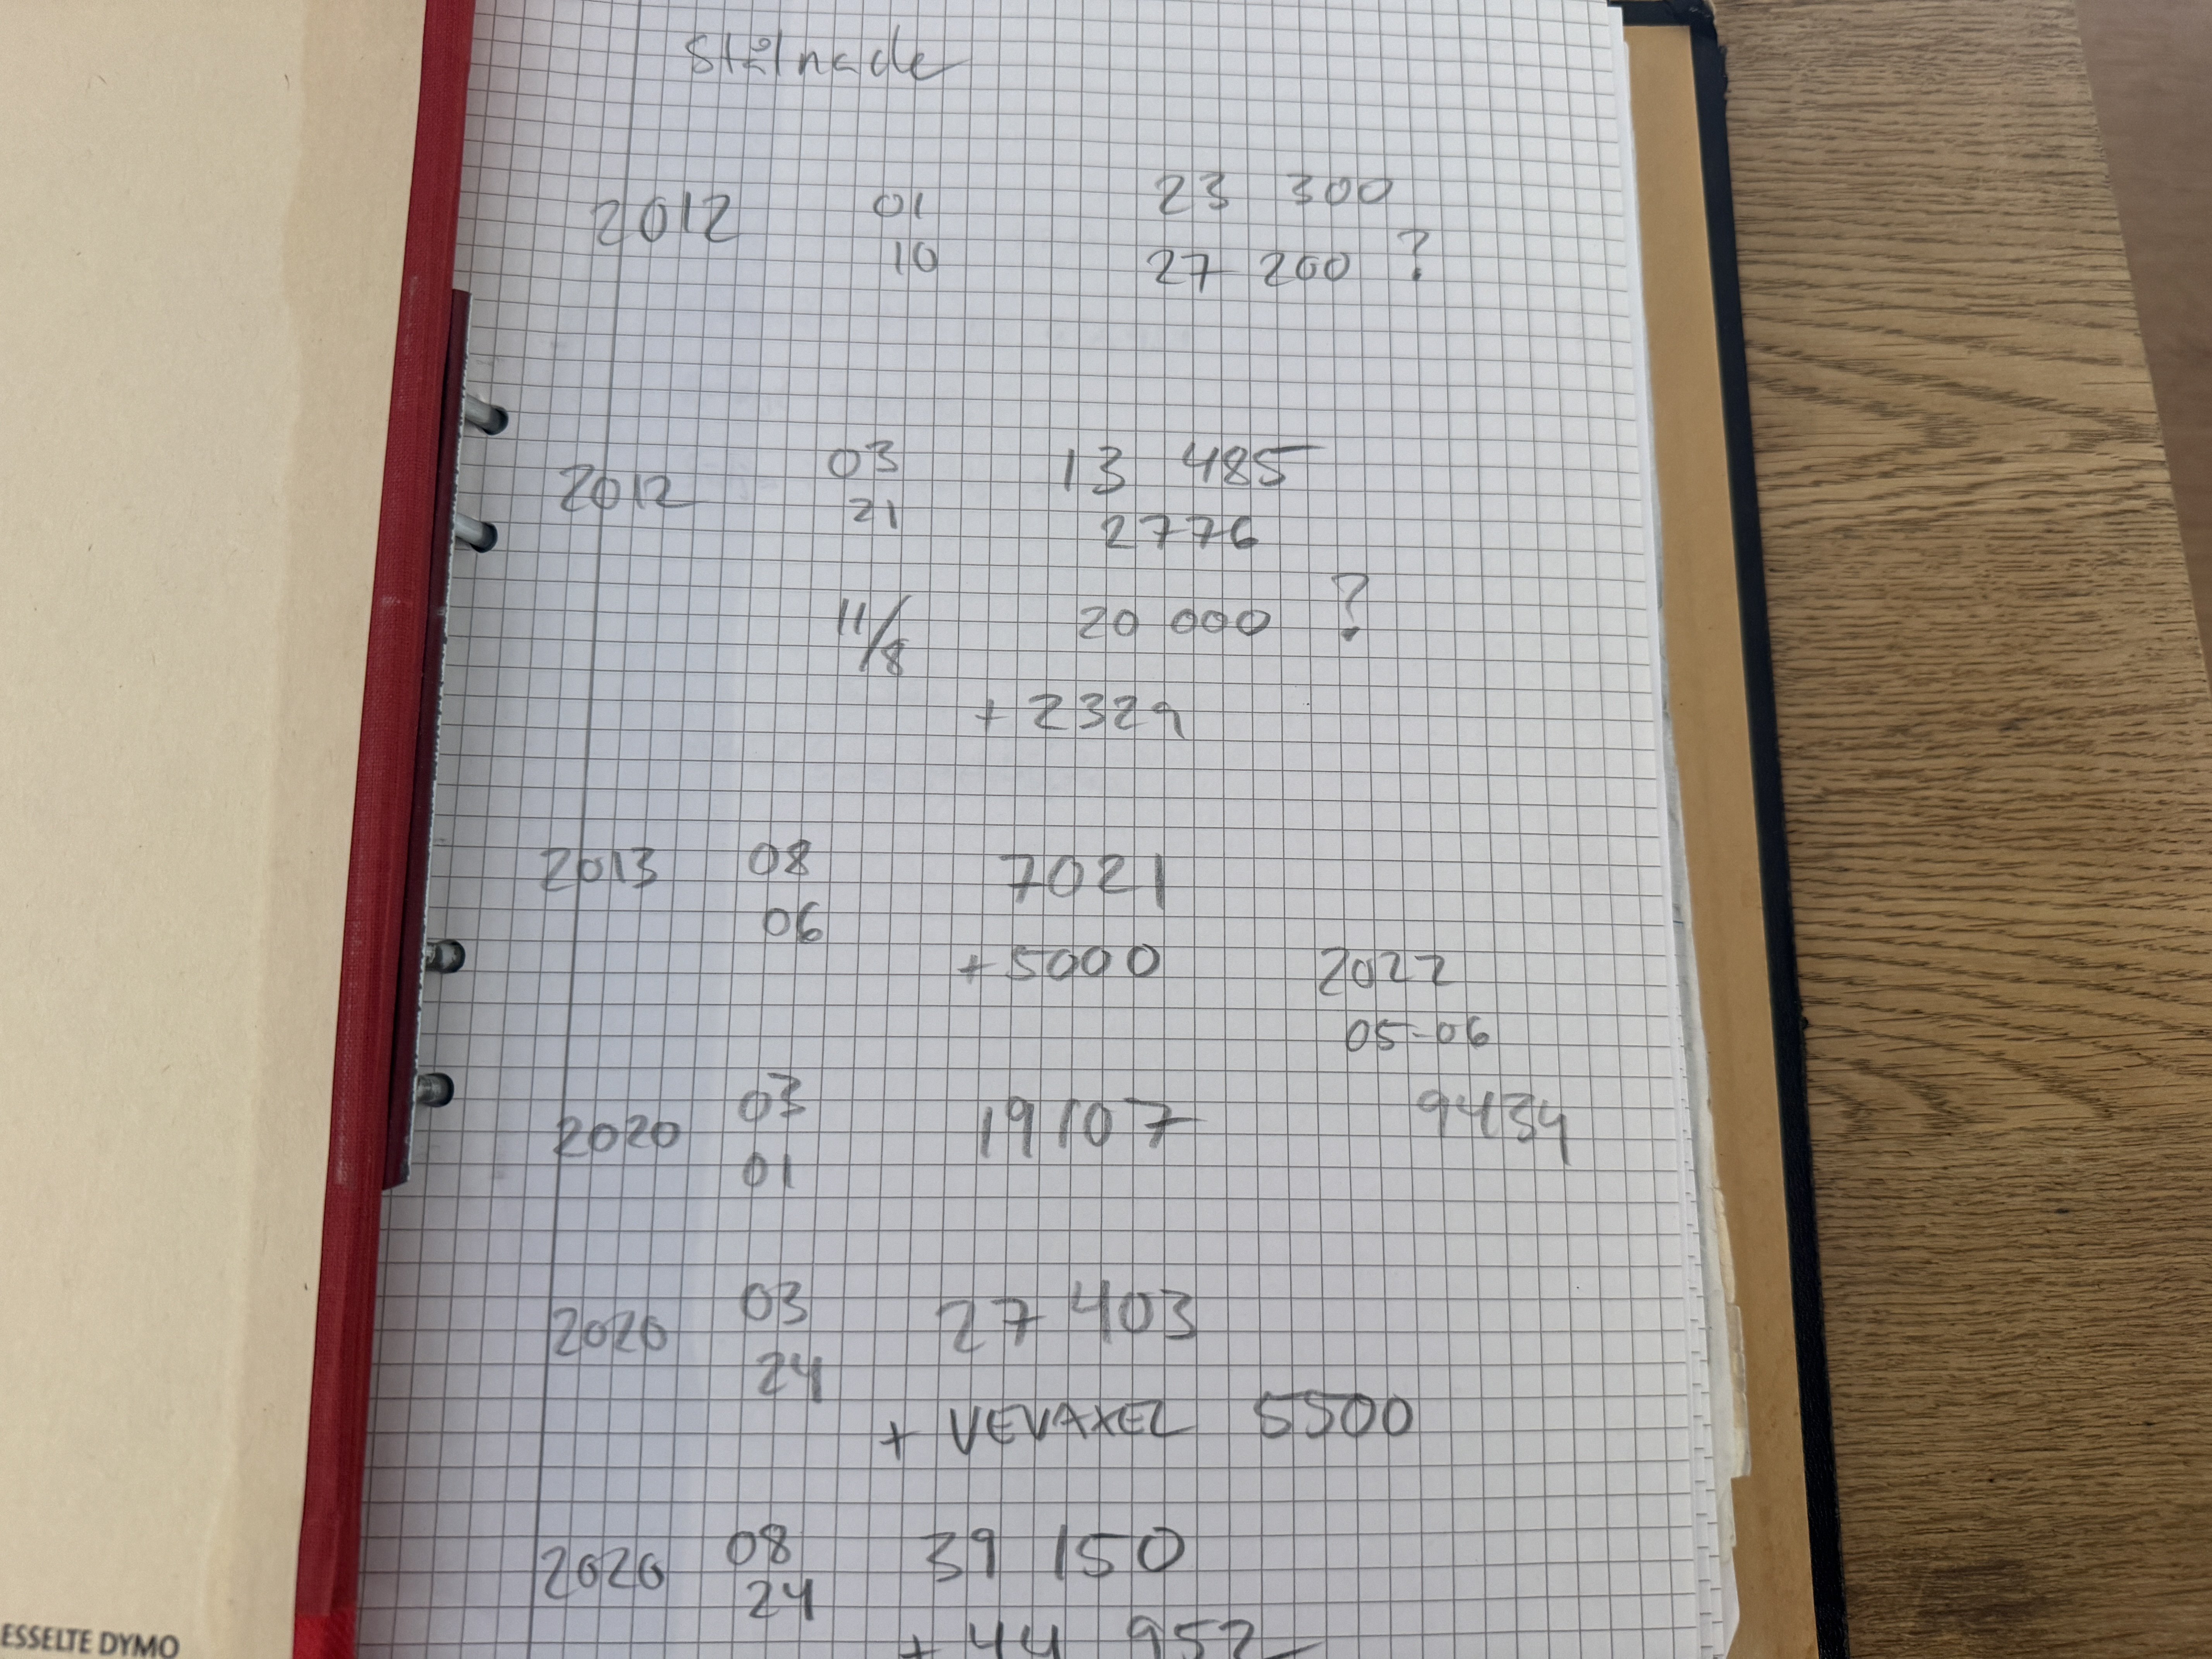 Stålnacke
2012 01 23 300
10 27 200 ?
2012 03 13 485
21 2776
11/8 20 000 ?
+ 2329
2013 08 7021
06
+ 5000 2022
05-06
2020 03 19107 9434
01
2020 03 27 403
24
+ VEVAXEL 5500
2020 08 39 150
24
+ 44 952
ESSELTE DYMO